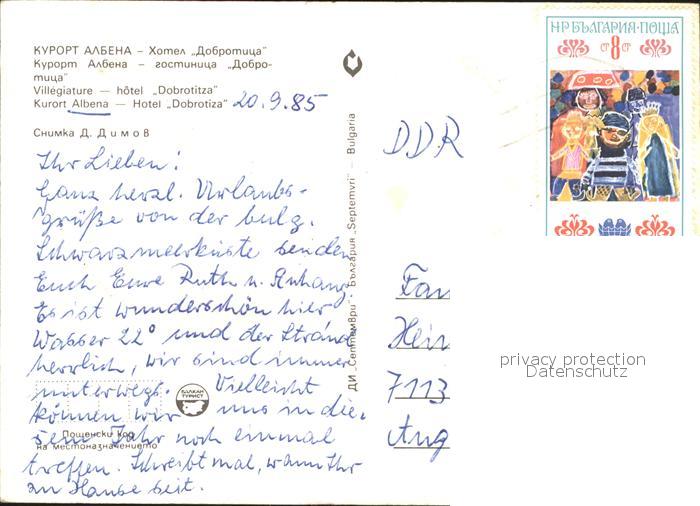 КУРОРТ АЛБЕНА – Хотел „Добротица"
Курорт Албена – гостиница „Добро-
тица"
Villégiature – hôtel „Dobrotitza"
Kurort Albena – Hotel „Dobrotiza" 20.9.85
Снимка Д. Димов
Ihr Lieben!
Ganz herzl. Urlaubs-
grüße von der bulg.
Schwarzmeerküste senden
Euch Eure Ruth u. Anhang.
Es ist wunderschön hier
Wasser 22° und der Strand
herrlich, wir sind immer
unterwegs. Vielleicht
können wir uns in die-
sem Jahr noch einmal
treffen. Schreibt mal, wann Ihr
zu Hause seit.
БАЛКАН
ТУРИСТ
Пощенски код
на местоназначението
ДИ „Септември" - България „Septemvri" – Bulgaria
НР БЪЛГАРИЯ·ПОЩА
СТ 8 СТ
DDR
Fam
Hein
7113
Aug
privacy protection
Datenschutz